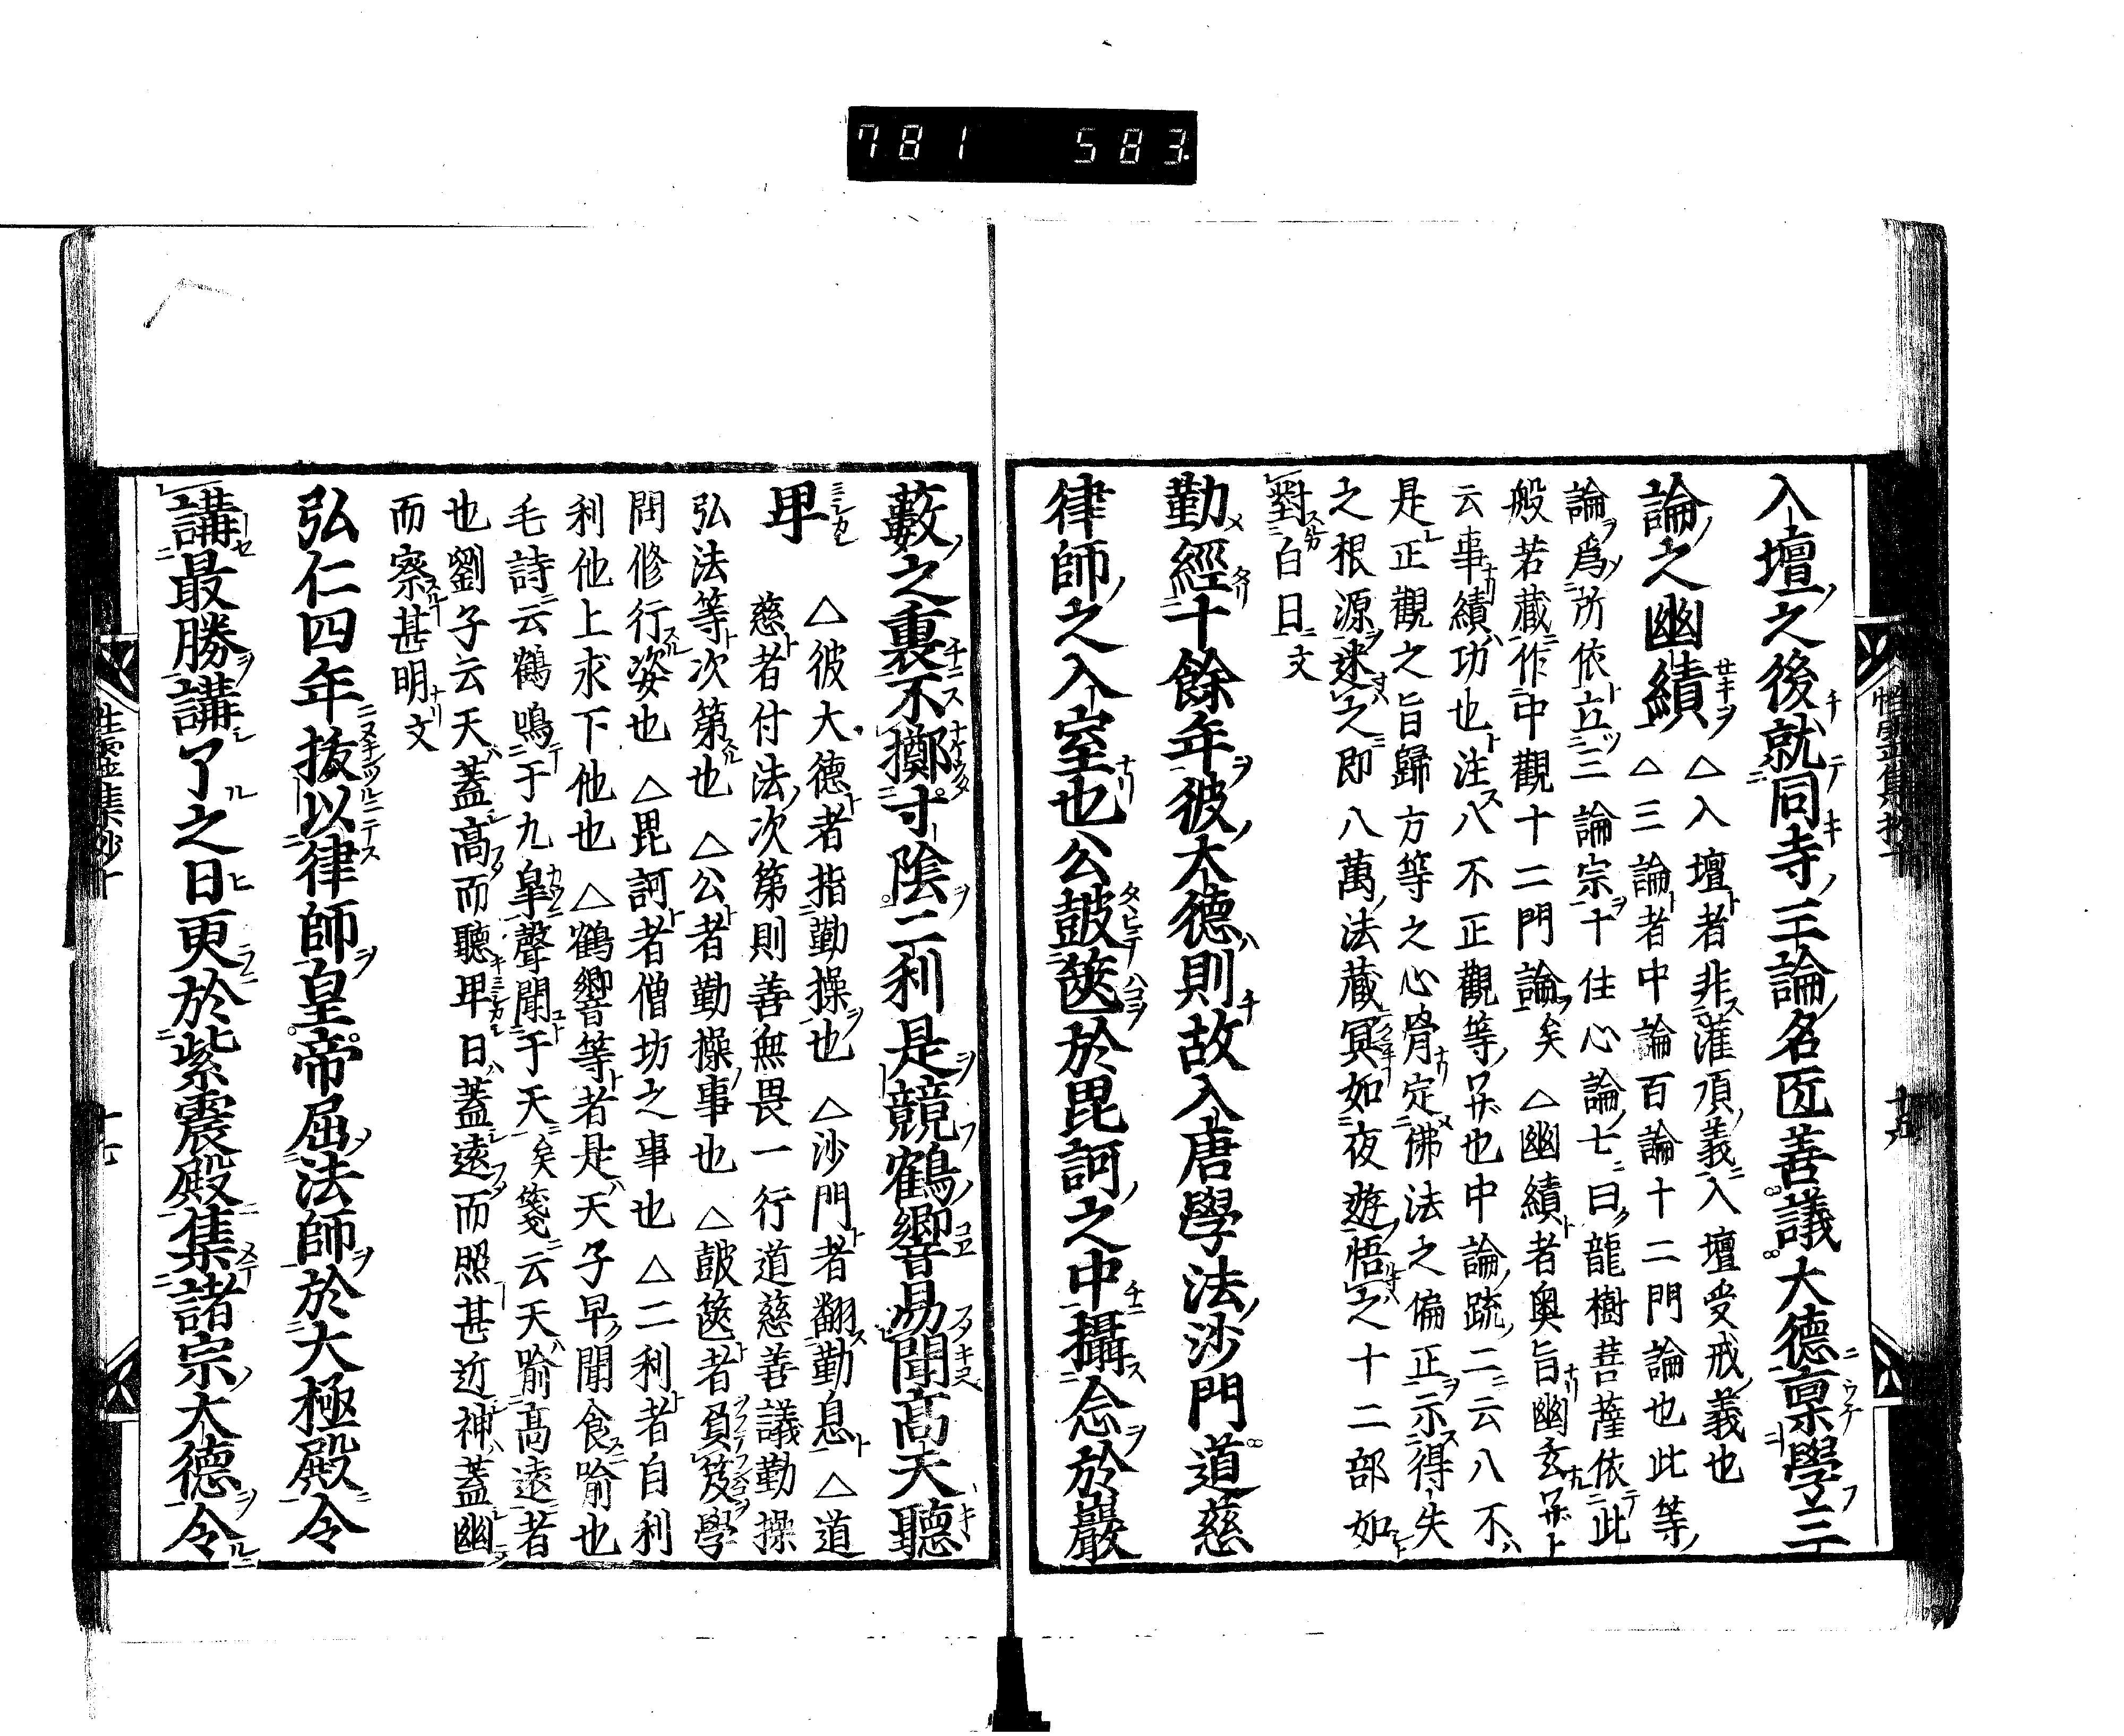 781 583
入壇之後就同寺三論名匠善議大德稟學三
論之幽績
△入壇者非灌頂義入壇受戒義也
△三論者中論百論十二門論也此等
論爲所依立三論宗十住心論七曰龍樹菩薩依此
般若藏作中觀十二門論矣△幽績者奧旨幽玄
云事績功也注八不正觀等也中論疏二云八不
是正觀之旨歸方等之心骨定佛法之偏正示得失
之根源迷之即八萬法藏冥如夜遊悟之十二部如
對白日文
勤經十餘年彼大德則故入唐學法沙門道慈
律師之入室也公鼓篋於毘訶之中攝念於巖
藪之裏不擲寸陰二利是競鶴響易聞高天聽
卑
△彼大德者指勤操也△沙門者翻勤息△道
慈者付法次第則善無畏一行道慈善議勤操
弘法等次第也△公者勤操事也△鼓篋者負笈學
問修行姿也△毘訶者僧坊之事也△二利者自利
利他上求下他也△鶴響等者是天子早聞食喻也
毛詩云鶴鳴于九皐聲聞于天矣箋云天喻高遠者
也劉子云天蓋高而聽卑日蓋遠而照甚近神蓋幽
而察甚明文
弘仁四年抜以律師皇帝屈法師於大極殿令
講最勝講了之日更於紫震殿集諸宗大德令
性靈集鈔十
十七